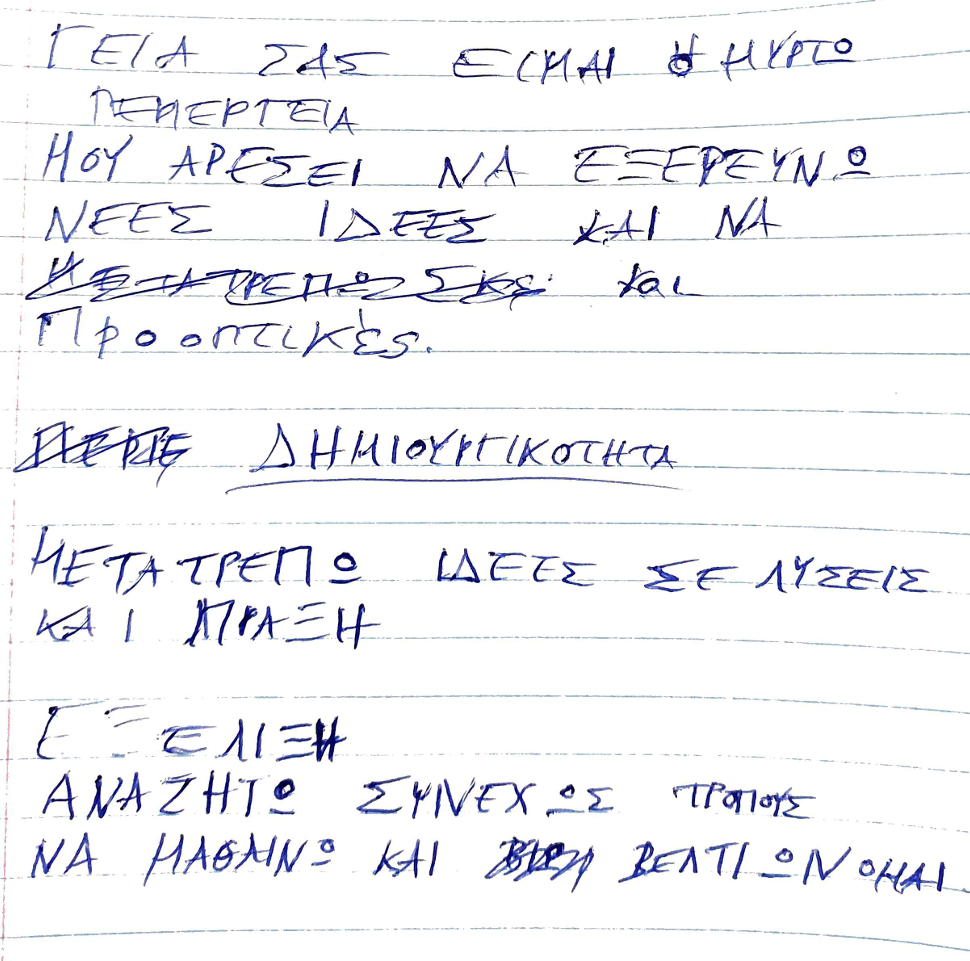 ΓΕΙΑ ΣΑΣ ΕΙΜΑΙ Η ΜΥΡΤΩ
ΜΟΥ ΑΡΕΣΕΙ ΝΑ ΕΞΕΡΕΥΝΩ
ΝΕΕΣ ΙΔΕΕΣ ΚΑΙ ΝΑ
και
Προοπτικές.
ΔΗΜΙΟΥΡΓΙΚΟΤΗΤΑ
ΜΕΤΑΤΡΕΠΩ ΙΔΕΕΣ ΣΕ ΛΥΣΕΙΣ
ΚΑΙ ΠΡΑΞΗ
ΕΞΕΛΙΞΗ
ΑΝΑΖΗΤΩ ΣΥΝΕΧΩΣ ΤΡΟΠΟΥΣ
ΝΑ ΜΑΘΑΙΝΩ ΚΑΙ ΒΕΛΤΙΩΝΟΜΑΙ.